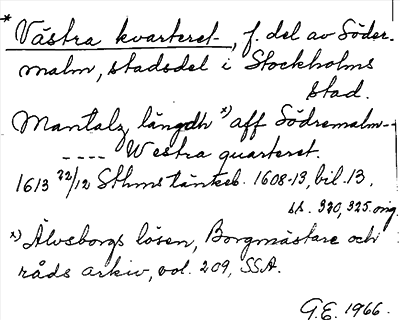 * Västra kvarteret, f. del av Söder-
malm, stadsdel i Stockholms
stad.
Mantalz längdh x) aff Södremalm-
---- Westra quarteret.
1613 22/12 Sthms tänkeb. 1608-13, bil. 13,
s. 320, 325. orig.
x) Älvsborgs lösen, Borgmästare och
råds arkiv, vol. 209, SSA.
G.E. 1966.